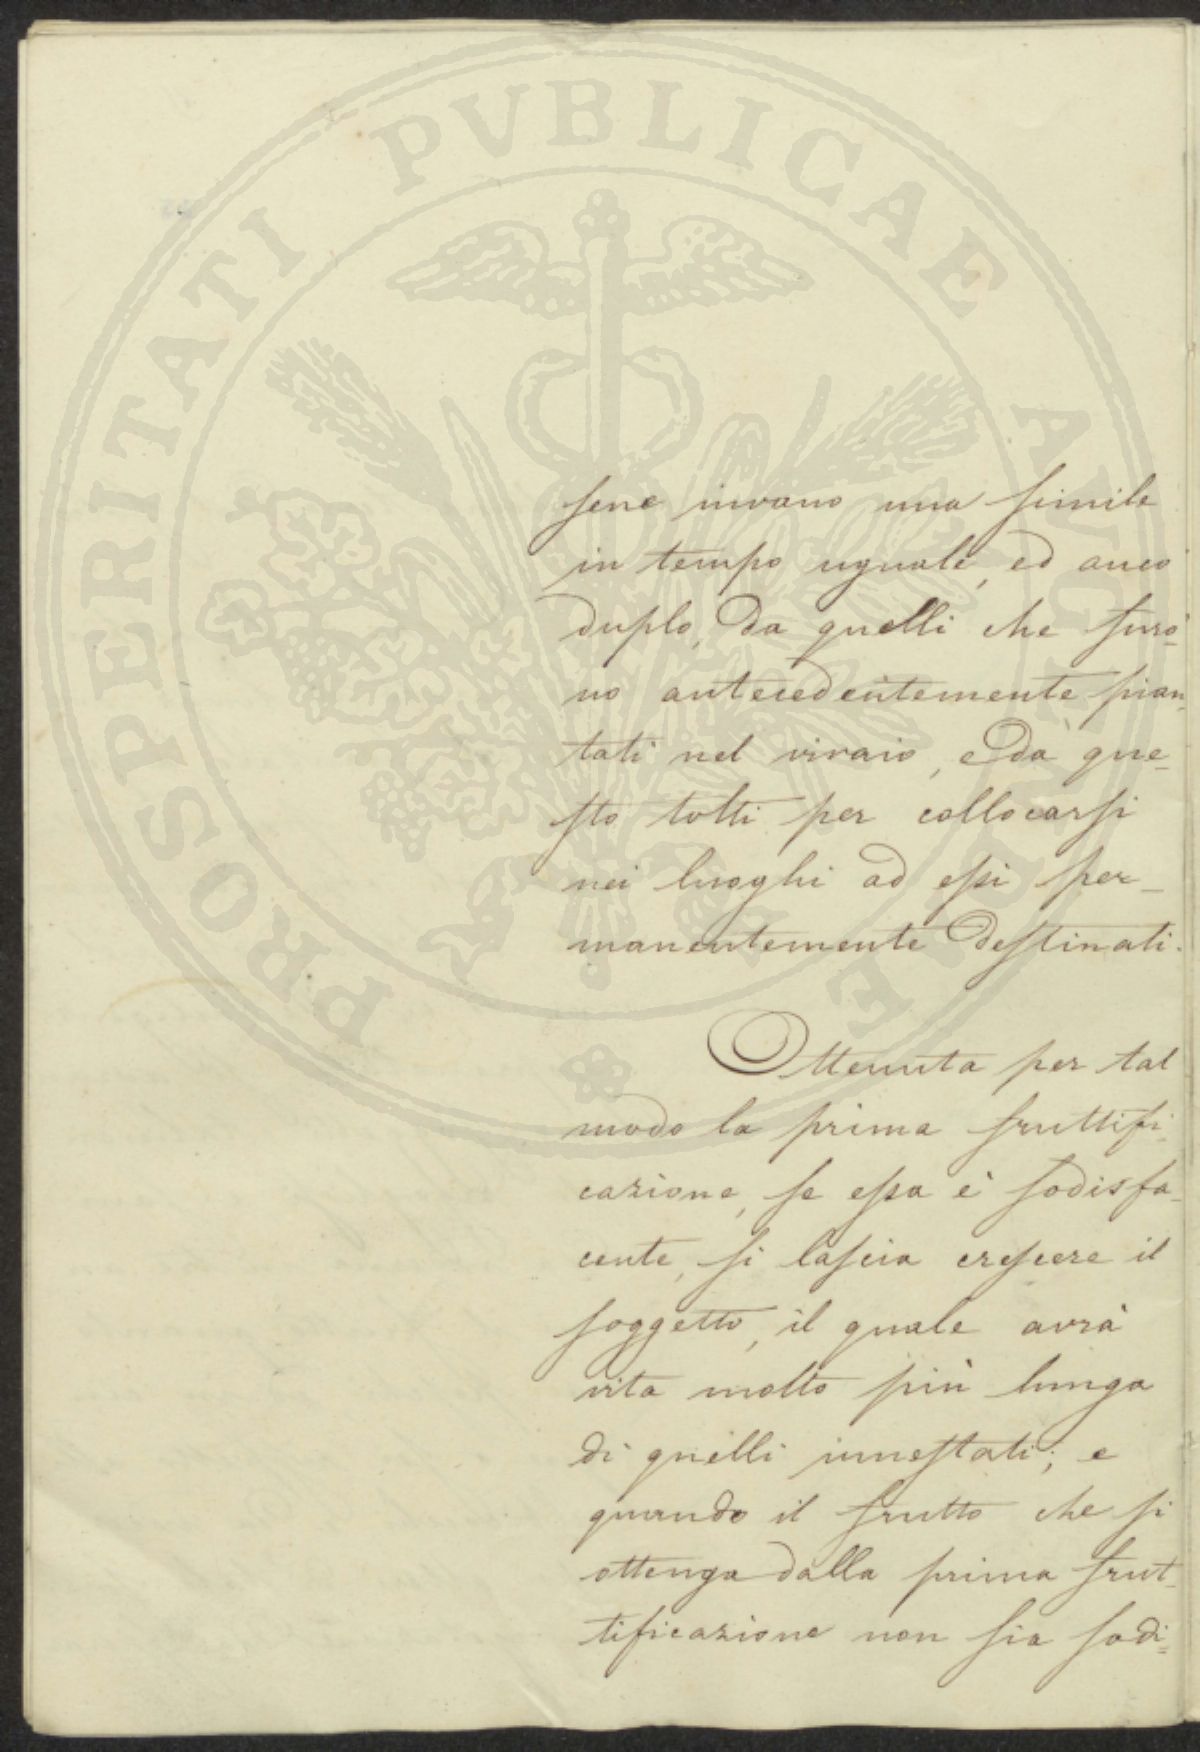 PROSPERITATI PVBLICAE AVGENDAE
sene invano una simile
in tempo uguale, ed anco
duplo, da quelli che furo=
no antecedentemente pian,
tati nel vivaio, e da que=
sto tolti per collocarsi
nei luoghi ad essi per_
manentemente destinati.
Ottenuta per tal
modo la prima fruttifi_
cazione, se essa è sodisfa_
cente, si lascia crescere il
soggetto, il quale avrà
vita molto più lunga
di quelli innestati; e
quando il frutto che si
ottenga dalla prima frut_
tificazione non sia sodi=